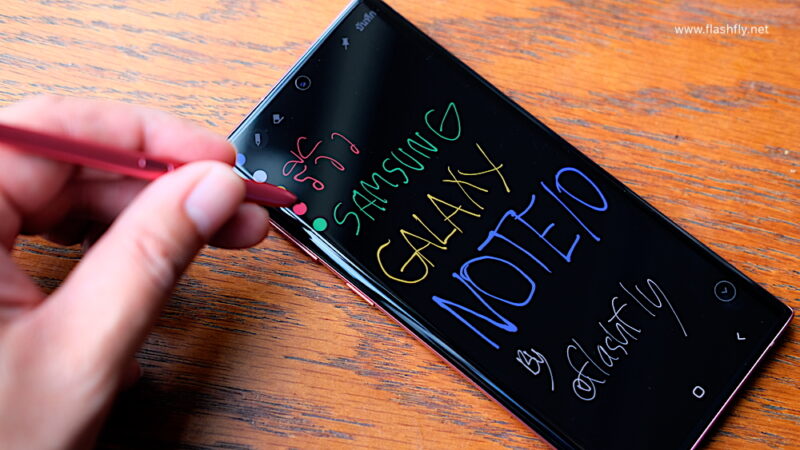 www.flashfly.net
บันทึก
SAMSUNG
GALAXY
NOTE10
By
@flashfly